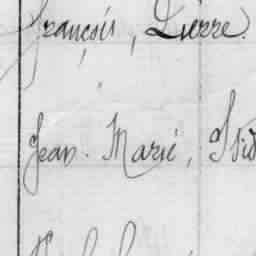 François, Pierre.
Jean-Marie,